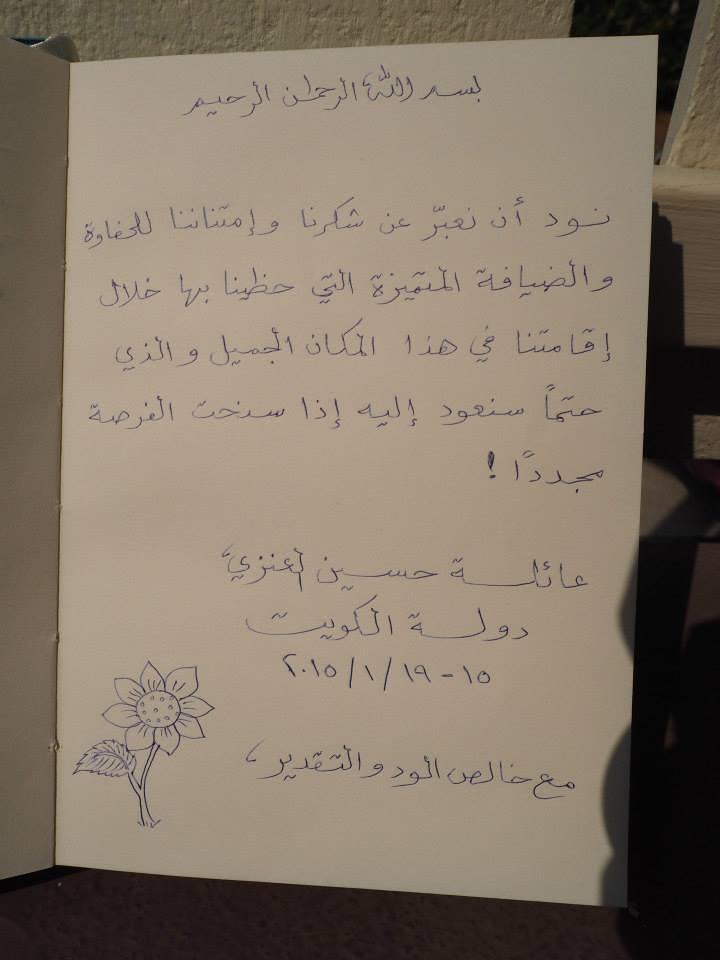 بسم الله الرحمن الرحيم
نود أن نعبّر عن شكرنا وإمتناننا للحفاوة
والضيافة المتميزة التي حظينا بها خلال
إقامتنا في هذا المكان الجميل والذي
حتماً سنعود إليه إذا سنحت الفرصة
مجددًا!
عائلة حسين العنزي،
دولة الكويت
١٥-١٩/١/٢٠١٥
مع خالص الود والتقدير،